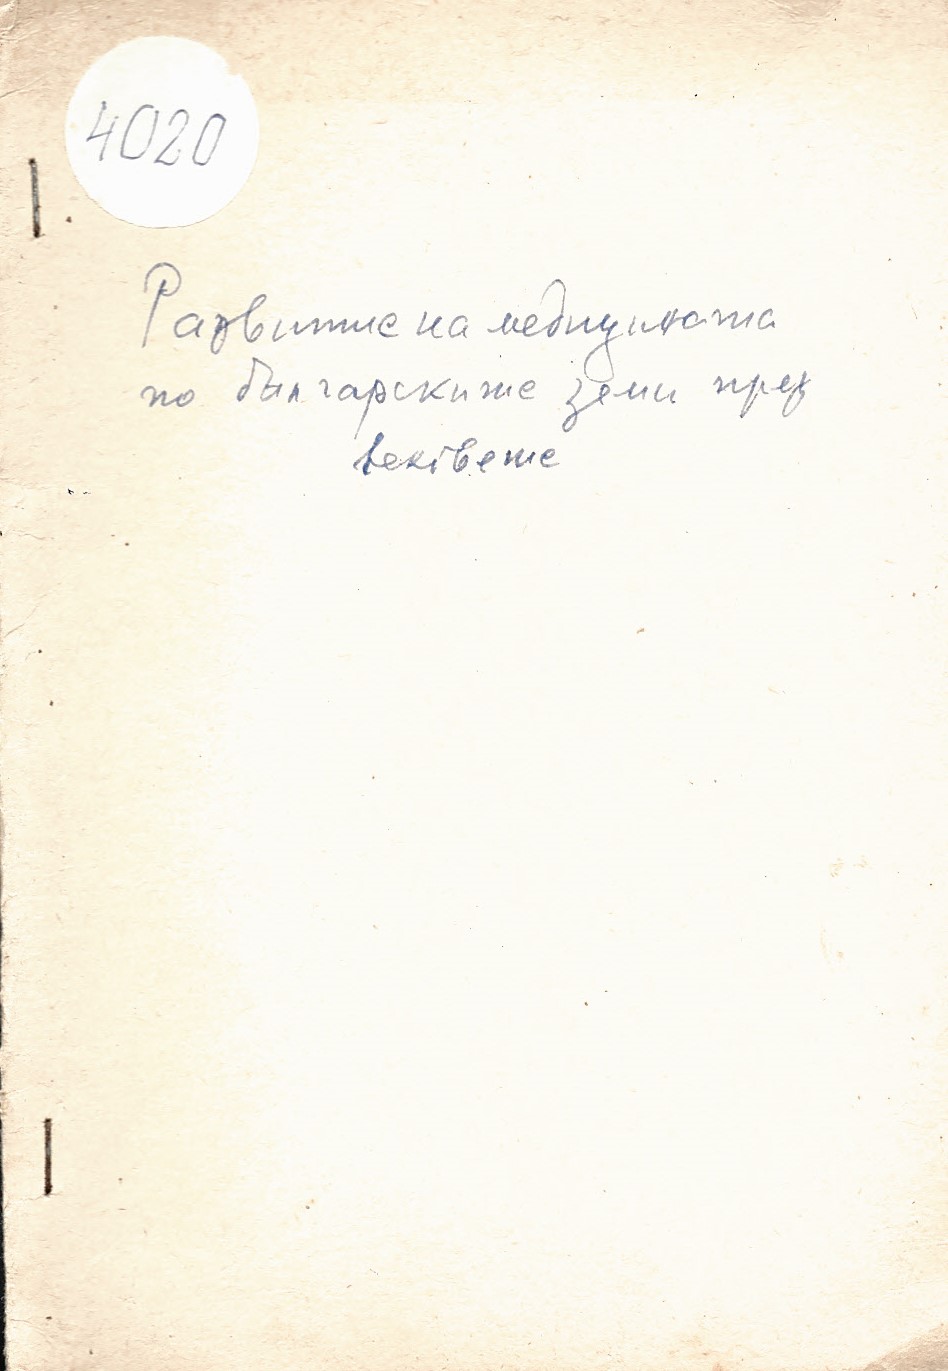 4020
Развитие на медицината
по българските земи през
вековете